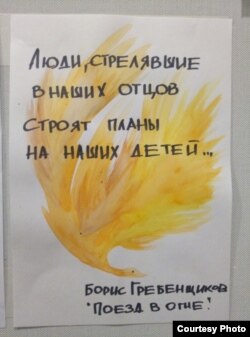 Люди, стрелявшие
в наших отцов
Строят планы
на наших детей...
Борис Гребенщиков
"Поезд в огне".
Courtesy Photo